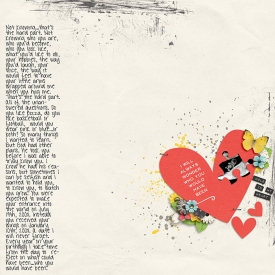 Not knowing...that's
the hard part. Not
knowing who you are,
who you'd become,
who you look like,
what you'd like to do,
your quirks, the way
you'd laugh, your
voice, the way it
would feel to have
your little arms
wrapped around me
when you hug me.
That's the hard part.
All of the unan-
swered questions. Do
you like soccer, do you
like basketball or
football, would you
wear pink or blue...or
both? So many things
I wanted to learn,
but God had other
plans, he took you
before I was able to
truly know you. I
know he had his rea-
sons, but sometimes I
can be selfish and I
wanted to hold you,
to know you, to watch
you grow. You were
expected to make
your entrance into
the world on July
instead
you received your
wings on January
a date I
will never forget.
Every year on your
birthday I take time
from the day to re-
flect on what could
have been...who you
would have been.
I WILL
ALWAYS
WONDER
WHO YOU
WOULD
HAVE
BEEN